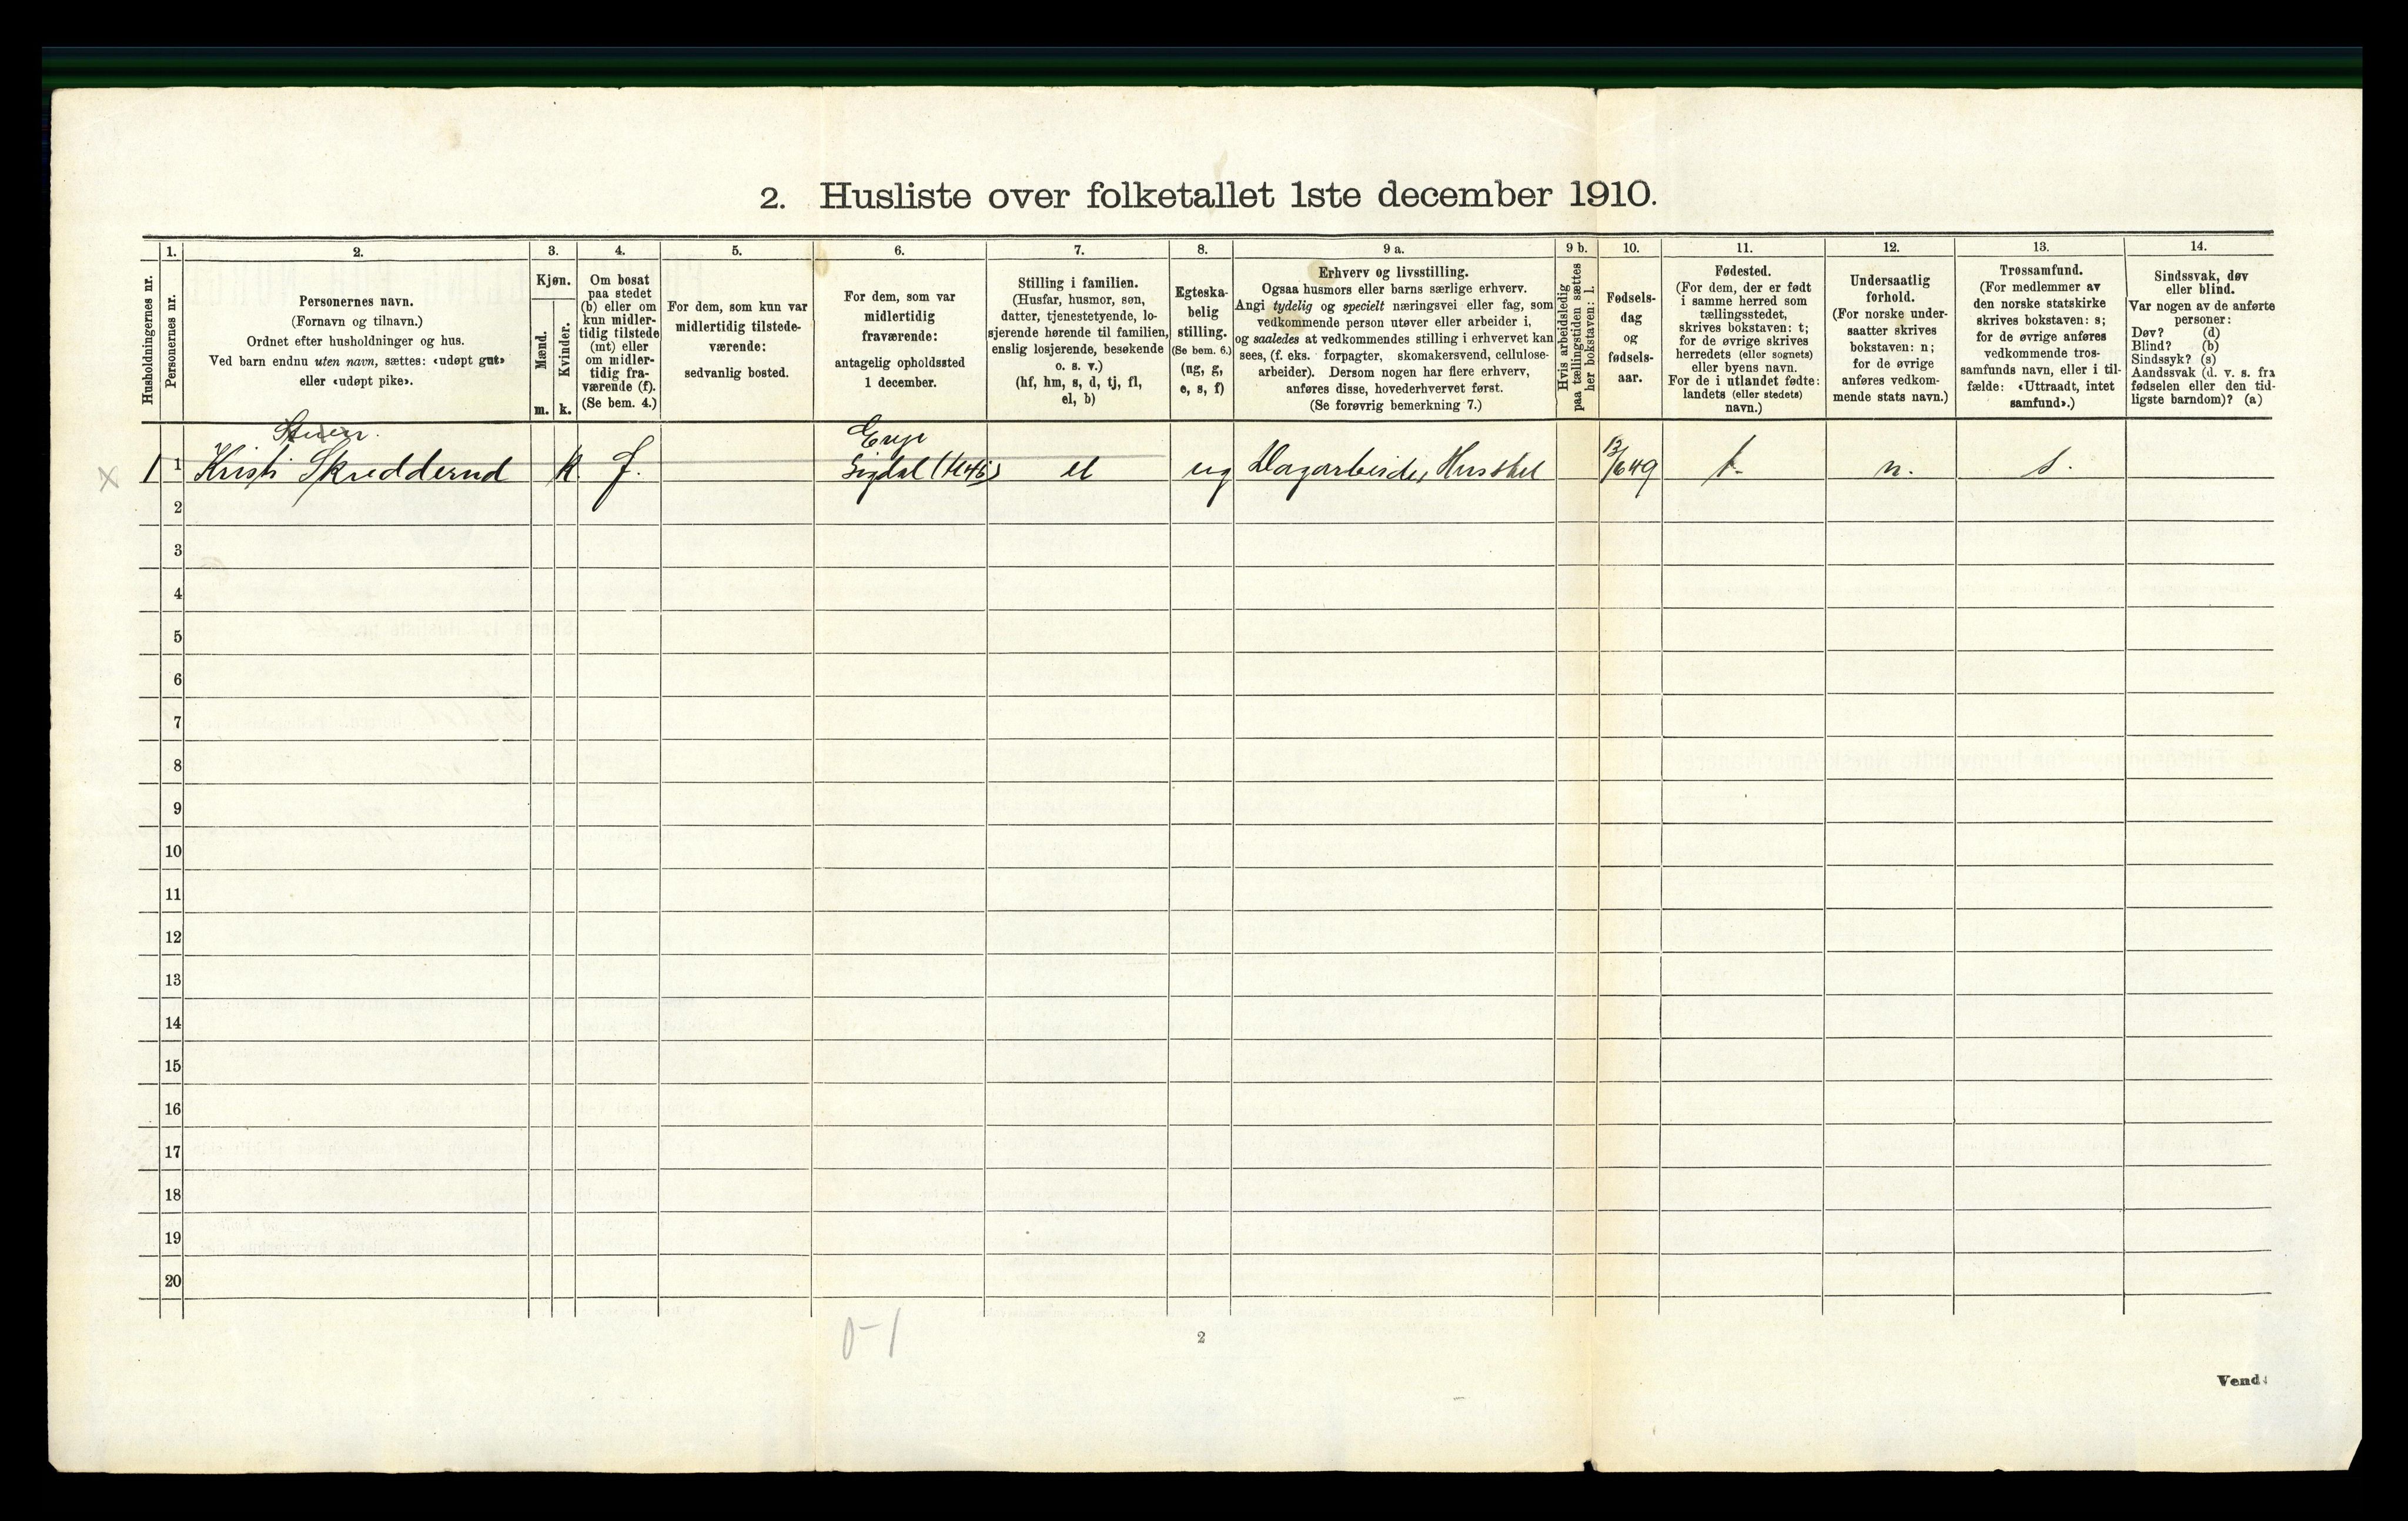 2. Husliste over folketallet 1ste december 1910.
1. 2. 3. 4. 5. 6. 7. 8. 9 a. 9 b. 10. 11. 12. 13. 14.
Husholdningernes nr.
Personernes nr.
Personernes navn.
(Fornavn og tilnavn.)
Ordnet efter husholdninger og hus.
Ved barn endnu uten navn, sættes: «udøpt gut»
eller «udøpt pike».
Kjøn.
Mænd.
Kvinder.
m. k.
Om bosat
paa stedet
(b) eller om
kun midler-
tidig tilstede
(mt) eller
om midler-
tidig fra-
værende (f).
(Se bem. 4.)
For dem, som kun var
midlertidig tilstede-
værende:
sedvanlig bosted.
For dem, som var
midlertidig
fraværende:
antagelig opholdssted
1 december.
Stilling i familien.
(Husfar, husmor, søn,
datter, tjenestetyende, lo-
sjerende hørende til familien,
enslig losjerende, besøkende
o. s. v.)
(hf, hm, s, d, tj, fl,
el, b)
Egteska-
belig
stilling.
(Se bem. 6.)
(ug, g,
e, s, f)
Erhverv og livsstilling.
Ogsaa husmors eller barns særlige erhverv.
Angi tydelig og specielt næringsvei eller fag, som
vedkommende person utøver eller arbeider i,
og saaledes at vedkommendes stilling i erhvervet kan
sees, (f. eks. forpagter, skomakersvend, cellulose-
arbeider). Dersom nogen har flere erhverv,
anføres disse, hovederhvervet først.
(Se forøvrig bemerkning 7.)
Hvis arbeidsledig
paa tællingstiden sættes
her bokstaven: l.
Fødsels-
dag
og
fødsels-
aar.
Fødested.
(For dem, der er født
i samme herred som
tællingsstedet,
skrives bokstaven: t;
for de øvrige skrives
herredets (eller sognets)
eller byens navn.
For de i utlandet fødte:
landets (eller stedets)
navn.)
Undersaatlig
forhold.
(For norske under-
saatter skrives
bokstaven: n;
for de øvrige
anføres vedkom-
mende stats navn.)
Trossamfund.
(For medlemmer av
den norske statskirke
skrives bokstaven: s;
for de øvrige anføres
vedkommende tros-
samfunds navn, eller i til-
fælde: «Uttraadt, intet
samfund».)
Sindssvak, døv
eller blind.
Var nogen av de anførte
personer:
Døv? (d)
Blind? (b)
Sindssyk? (s)
Aandssvak (d. v. s. fra
fødselen eller den tid-
ligste barndom)? (a)
x 1 1 Kristi Skredderud k. f. Sigdal el ug Dagarbeider, Husstel 13/6 49 t. n. s.
2
3
4
5
6
7
8
9
10
11
12
13
14
15
16
17
18
19
20
0-1
2
Vend